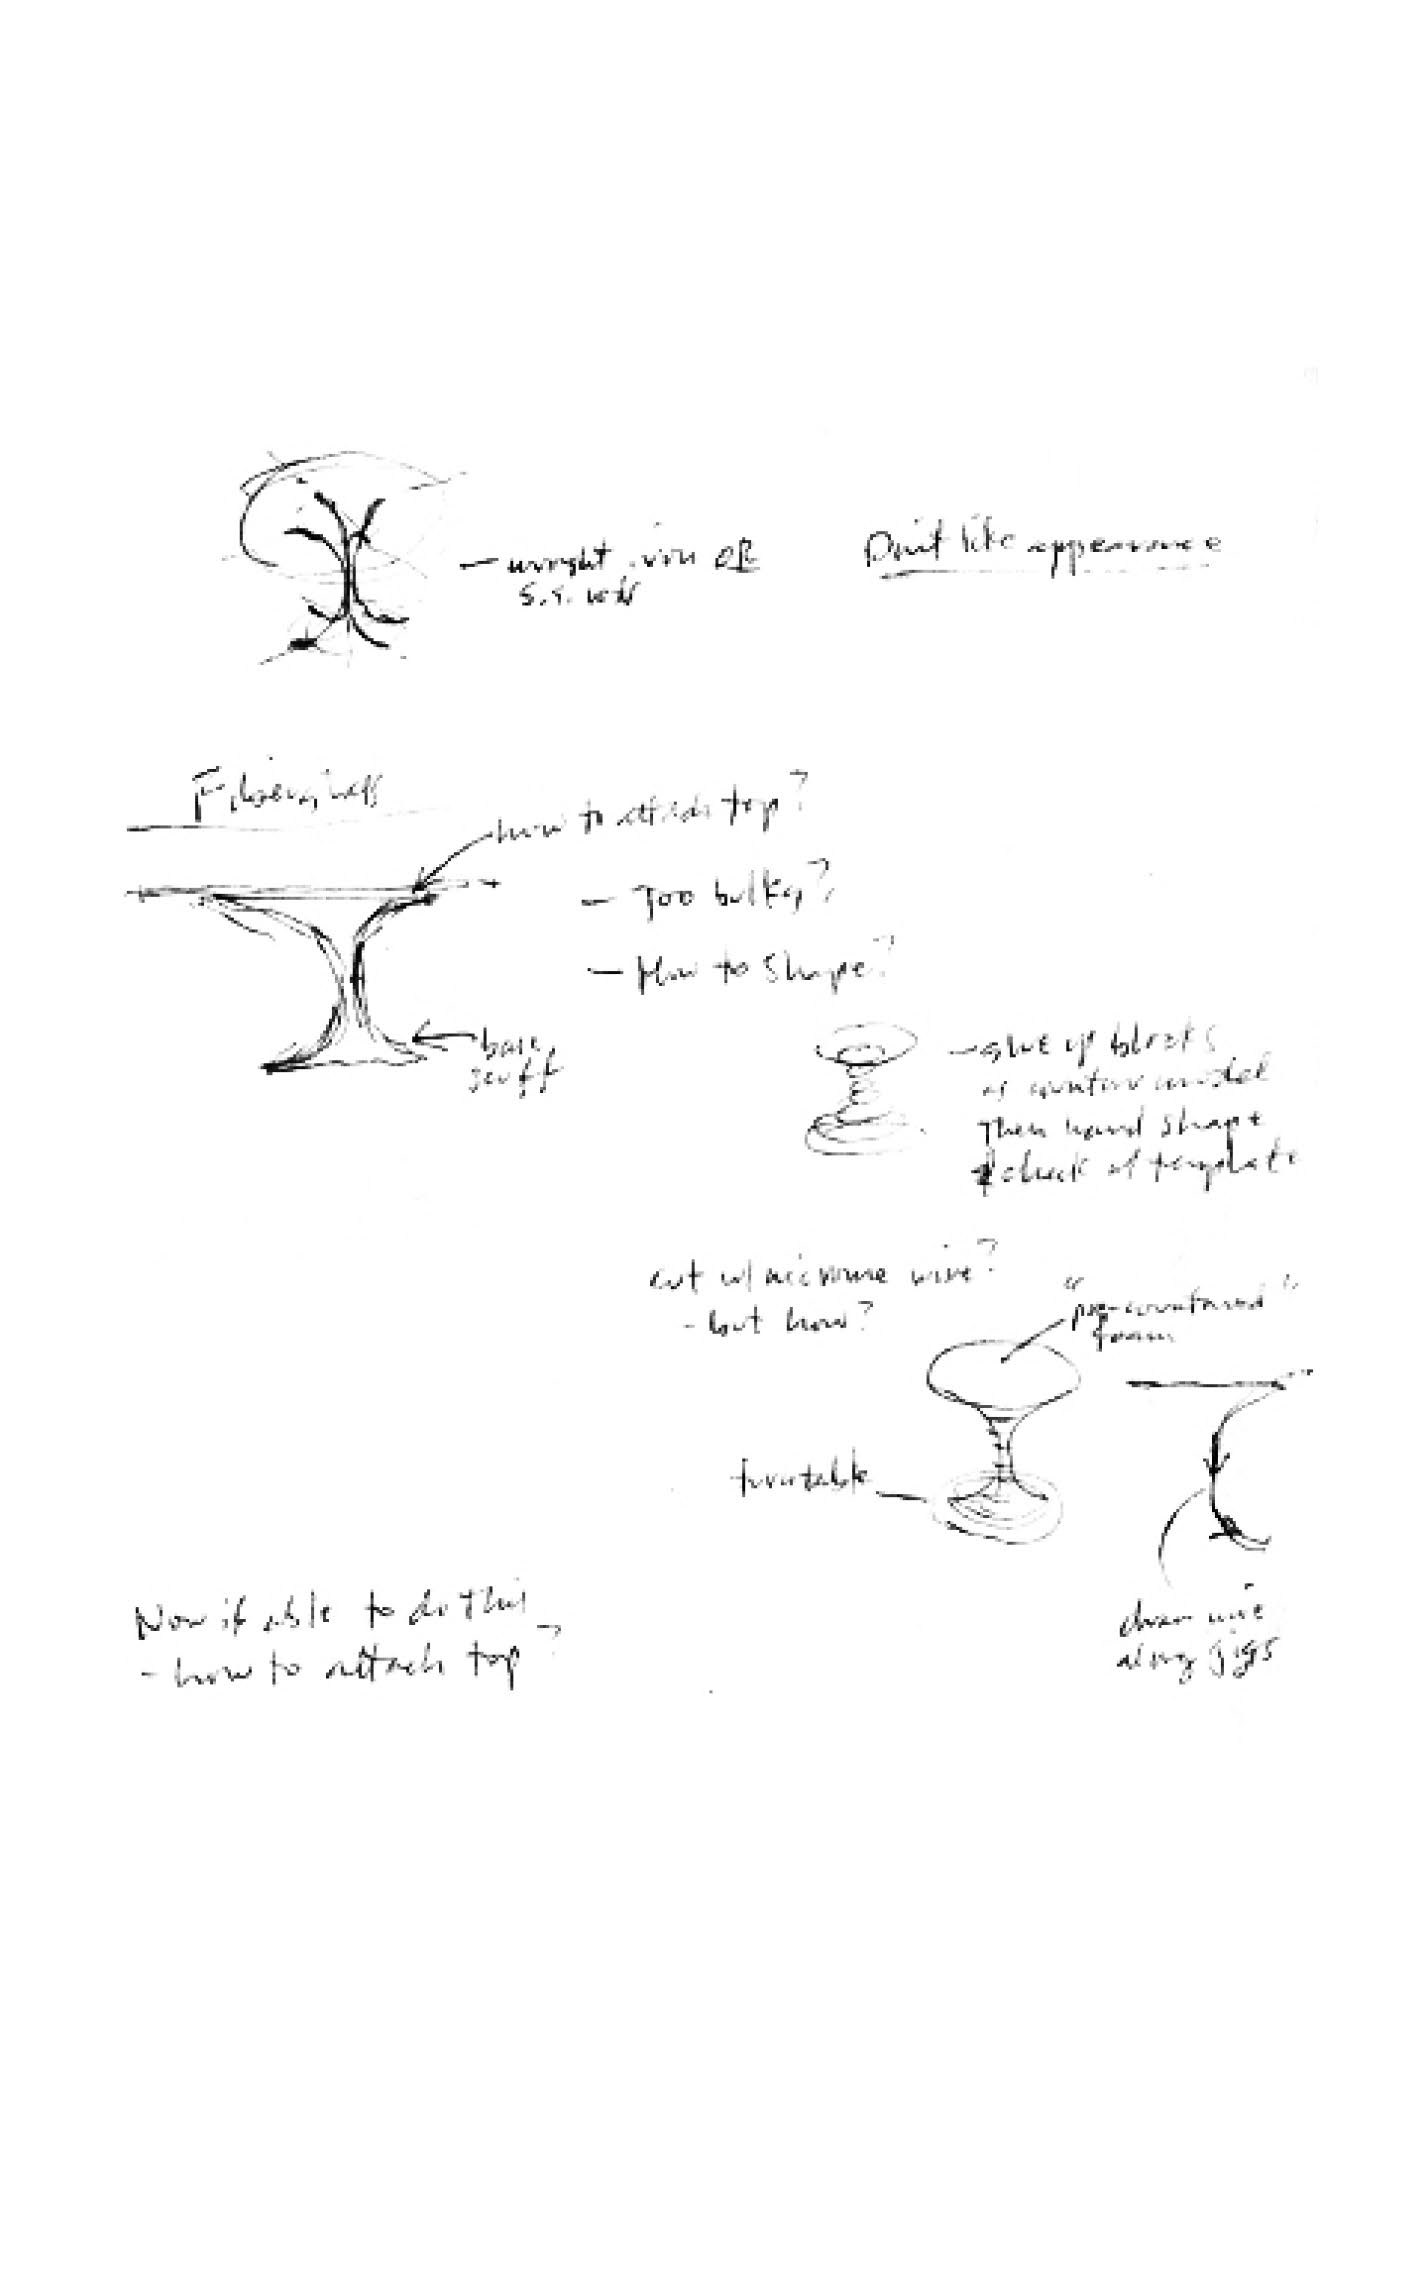 — wrought iron OR
S.S. rod
Don't like appearance
Fiberglass
how to attach top?
— Too bulky?
— How to shape?
base
scuff
— glue up blocks
as contour model
then hand shape
& check w/ template
cut w/ nichrome wire?
- but how?
"pre-contoured"
foam
turntable
draw wire
along jigs
Now if able to do this
- how to attach top?